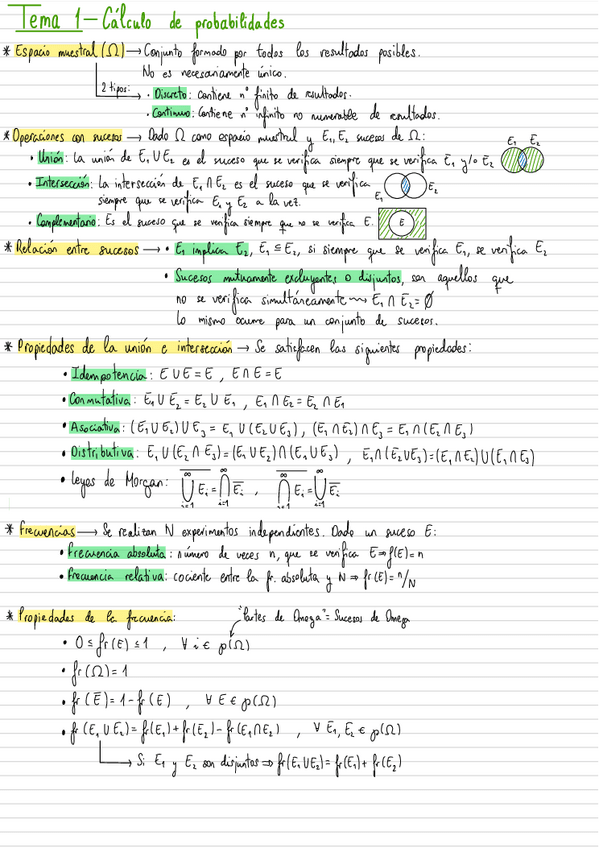 Tema 1 – Cálculo de probabilidades
* Espacio muestral (Ω) → Conjunto formado por todos los resultados posibles.
No es necesariamente único.
2 tipos: → • Discreto: Contiene nº finito de resultados.
• Continuo: Contiene nº infinito no numerable de resultados.
* Operaciones con sucesos → Dado Ω como espacio muestral y E₁, E₂ sucesos de Ω:
• Unión: La unión de E₁ ∪ E₂ es el suceso que se verifica siempre que se verifica E₁ y/o E₂
E₁ E₂
• Intersección: La intersección de E₁ ∩ E₂ es el suceso que se verifica
siempre que se verifica E₁ y E₂ a la vez.
E₁ E₂
• Complementario: Es el suceso que se verifica siempre que no se verifica E.
E
* Relación entre sucesos → • E₁ implica E₂, E₁ ⊆ E₂, si siempre que se verifica E₁, se verifica E₂
• Sucesos mutuamente excluyentes o disjuntos, son aquellos que
no se verifica simultáneamente ⇝ E₁ ∩ E₂ = ∅
Lo mismo ocurre para un conjunto de sucesos.
* Propiedades de la unión e intersección → Se satisfacen las siguientes propiedades:
• Idempotencia: E ∪ E = E , E ∩ E = E
• Conmutativa: E₁ ∪ E₂ = E₂ ∪ E₁ , E₁ ∩ E₂ = E₂ ∩ E₁
• Asociativa: (E₁ ∪ E₂) ∪ E₃ = E₁ ∪ (E₂ ∪ E₃) , (E₁ ∩ E₂) ∩ E₃ = E₁ ∩ (E₂ ∩ E₃)
• Distributiva: E₁ ∪ (E₂ ∩ E₃) = (E₁ ∪ E₂) ∩ (E₁ ∪ E₃) , E₁ ∩ (E₂ ∪ E₃) = (E₁ ∩ E₂) ∪ (E₁ ∩ E₃)
• Leyes de Morgan: $\overline{\bigcup_{i=1}^{\infty} E_i} = \bigcap_{i=1}^{\infty} \overline{E_i}$ , $\overline{\bigcap_{i=1}^{\infty} E_i} = \bigcup_{i=1}^{\infty} \overline{E_i}$
* Frecuencias → Se realizan N experimentos independientes. Dado un suceso E:
• Frecuencia absoluta: número de veces n, que se verifica E ⇒ f(E) = n
• Frecuencia relativa: cociente entre la fr. absoluta y N ⇒ fr(E) = n/N
* Propiedades de la frecuencia:
"Partes de Omega" = Sucesos de Omega
• 0 ≤ fr(E) ≤ 1 , ∀ i ∈ ℘(Ω)
• fr(Ω) = 1
• fr(E̅) = 1 - fr(E) , ∀ E ∈ ℘(Ω)
• fr(E₁ ∪ E₂) = fr(E₁) + fr(E₂) - fr(E₁ ∩ E₂) , ∀ E₁, E₂ ∈ ℘(Ω)
→ Si E₁ y E₂ son disjuntos ⇒ fr(E₁ ∪ E₂) = fr(E₁) + fr(E₂)